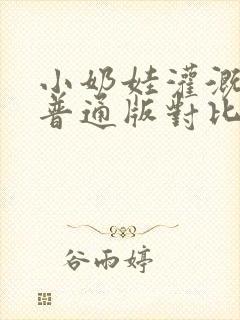 小奶娃灌溉
普通版對比
谷雨婷